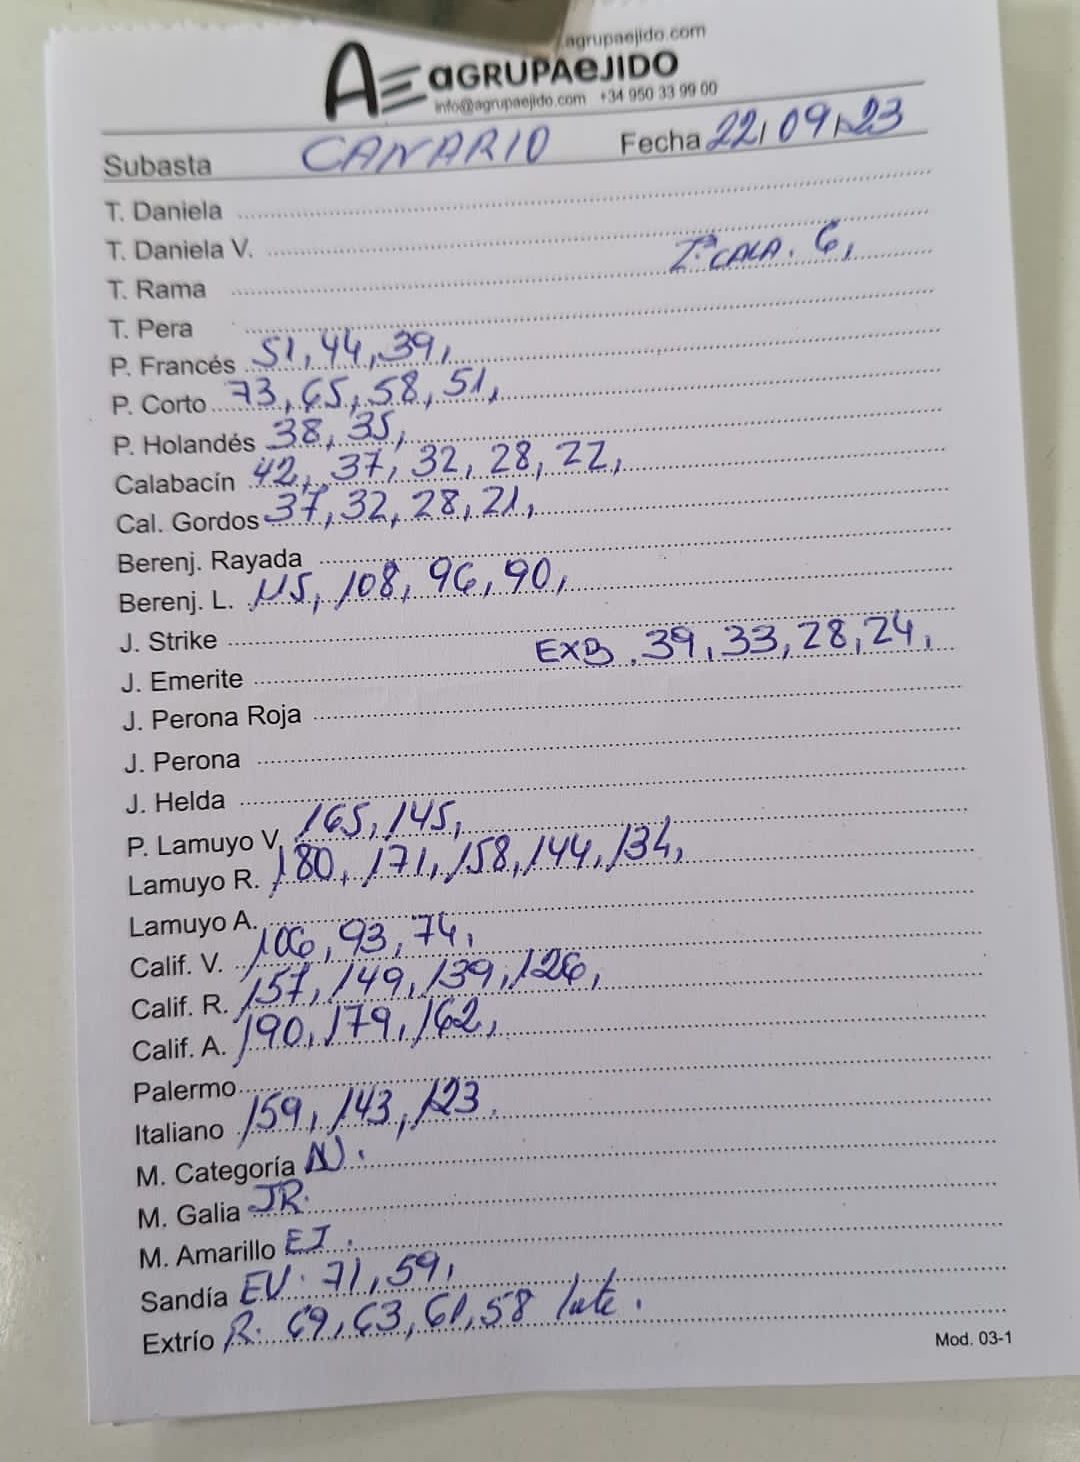 agrupaejido.com
AE aGRUPAeJIDO
info@agrupaejido.com +34 950 33 99 00
Subasta CANARIO Fecha 22/09/23
T. Daniela
T. Daniela V.
2ª CALA. 6,
T. Rama
T. Pera
P. Francés 51, 44, 39,
P. Corto 73, 65, 58, 51,
P. Holandés 38, 35,
Calabacín 42, 37, 32, 28, 22,
Cal. Gordos 37, 32, 28, 21,
Berenj. Rayada
Berenj. L. 115, 108, 96, 90,
J. Strike
EXB. 39, 33, 28, 24,
J. Emerite
J. Perona Roja
J. Perona
J. Helda
P. Lamuyo V. 165, 145,
Lamuyo R. 180, 171, 158, 144, 134,
Lamuyo A.
Calif. V. 106, 93, 74,
Calif. R. 157, 149, 139, 126,
Calif. A. 190, 179, 162,
Palermo
Italiano 159, 143, 123.
M. Categoría N.
M. Galia JR.
M. Amarillo EJ.
Sandía EV. 71, 59,
Extrío R. 69, 63, 61, 58 lote.
Mod. 03-1